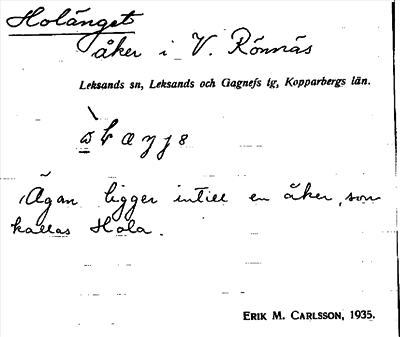 Holänget
åker i V. Rönnäs
Leksands sn, Leksands och Gagnefs tg, Kopparbergs län.
Ägan ligger intill en åker, som
kallas Hola.
ERIK M. CARLSSON, 1935.